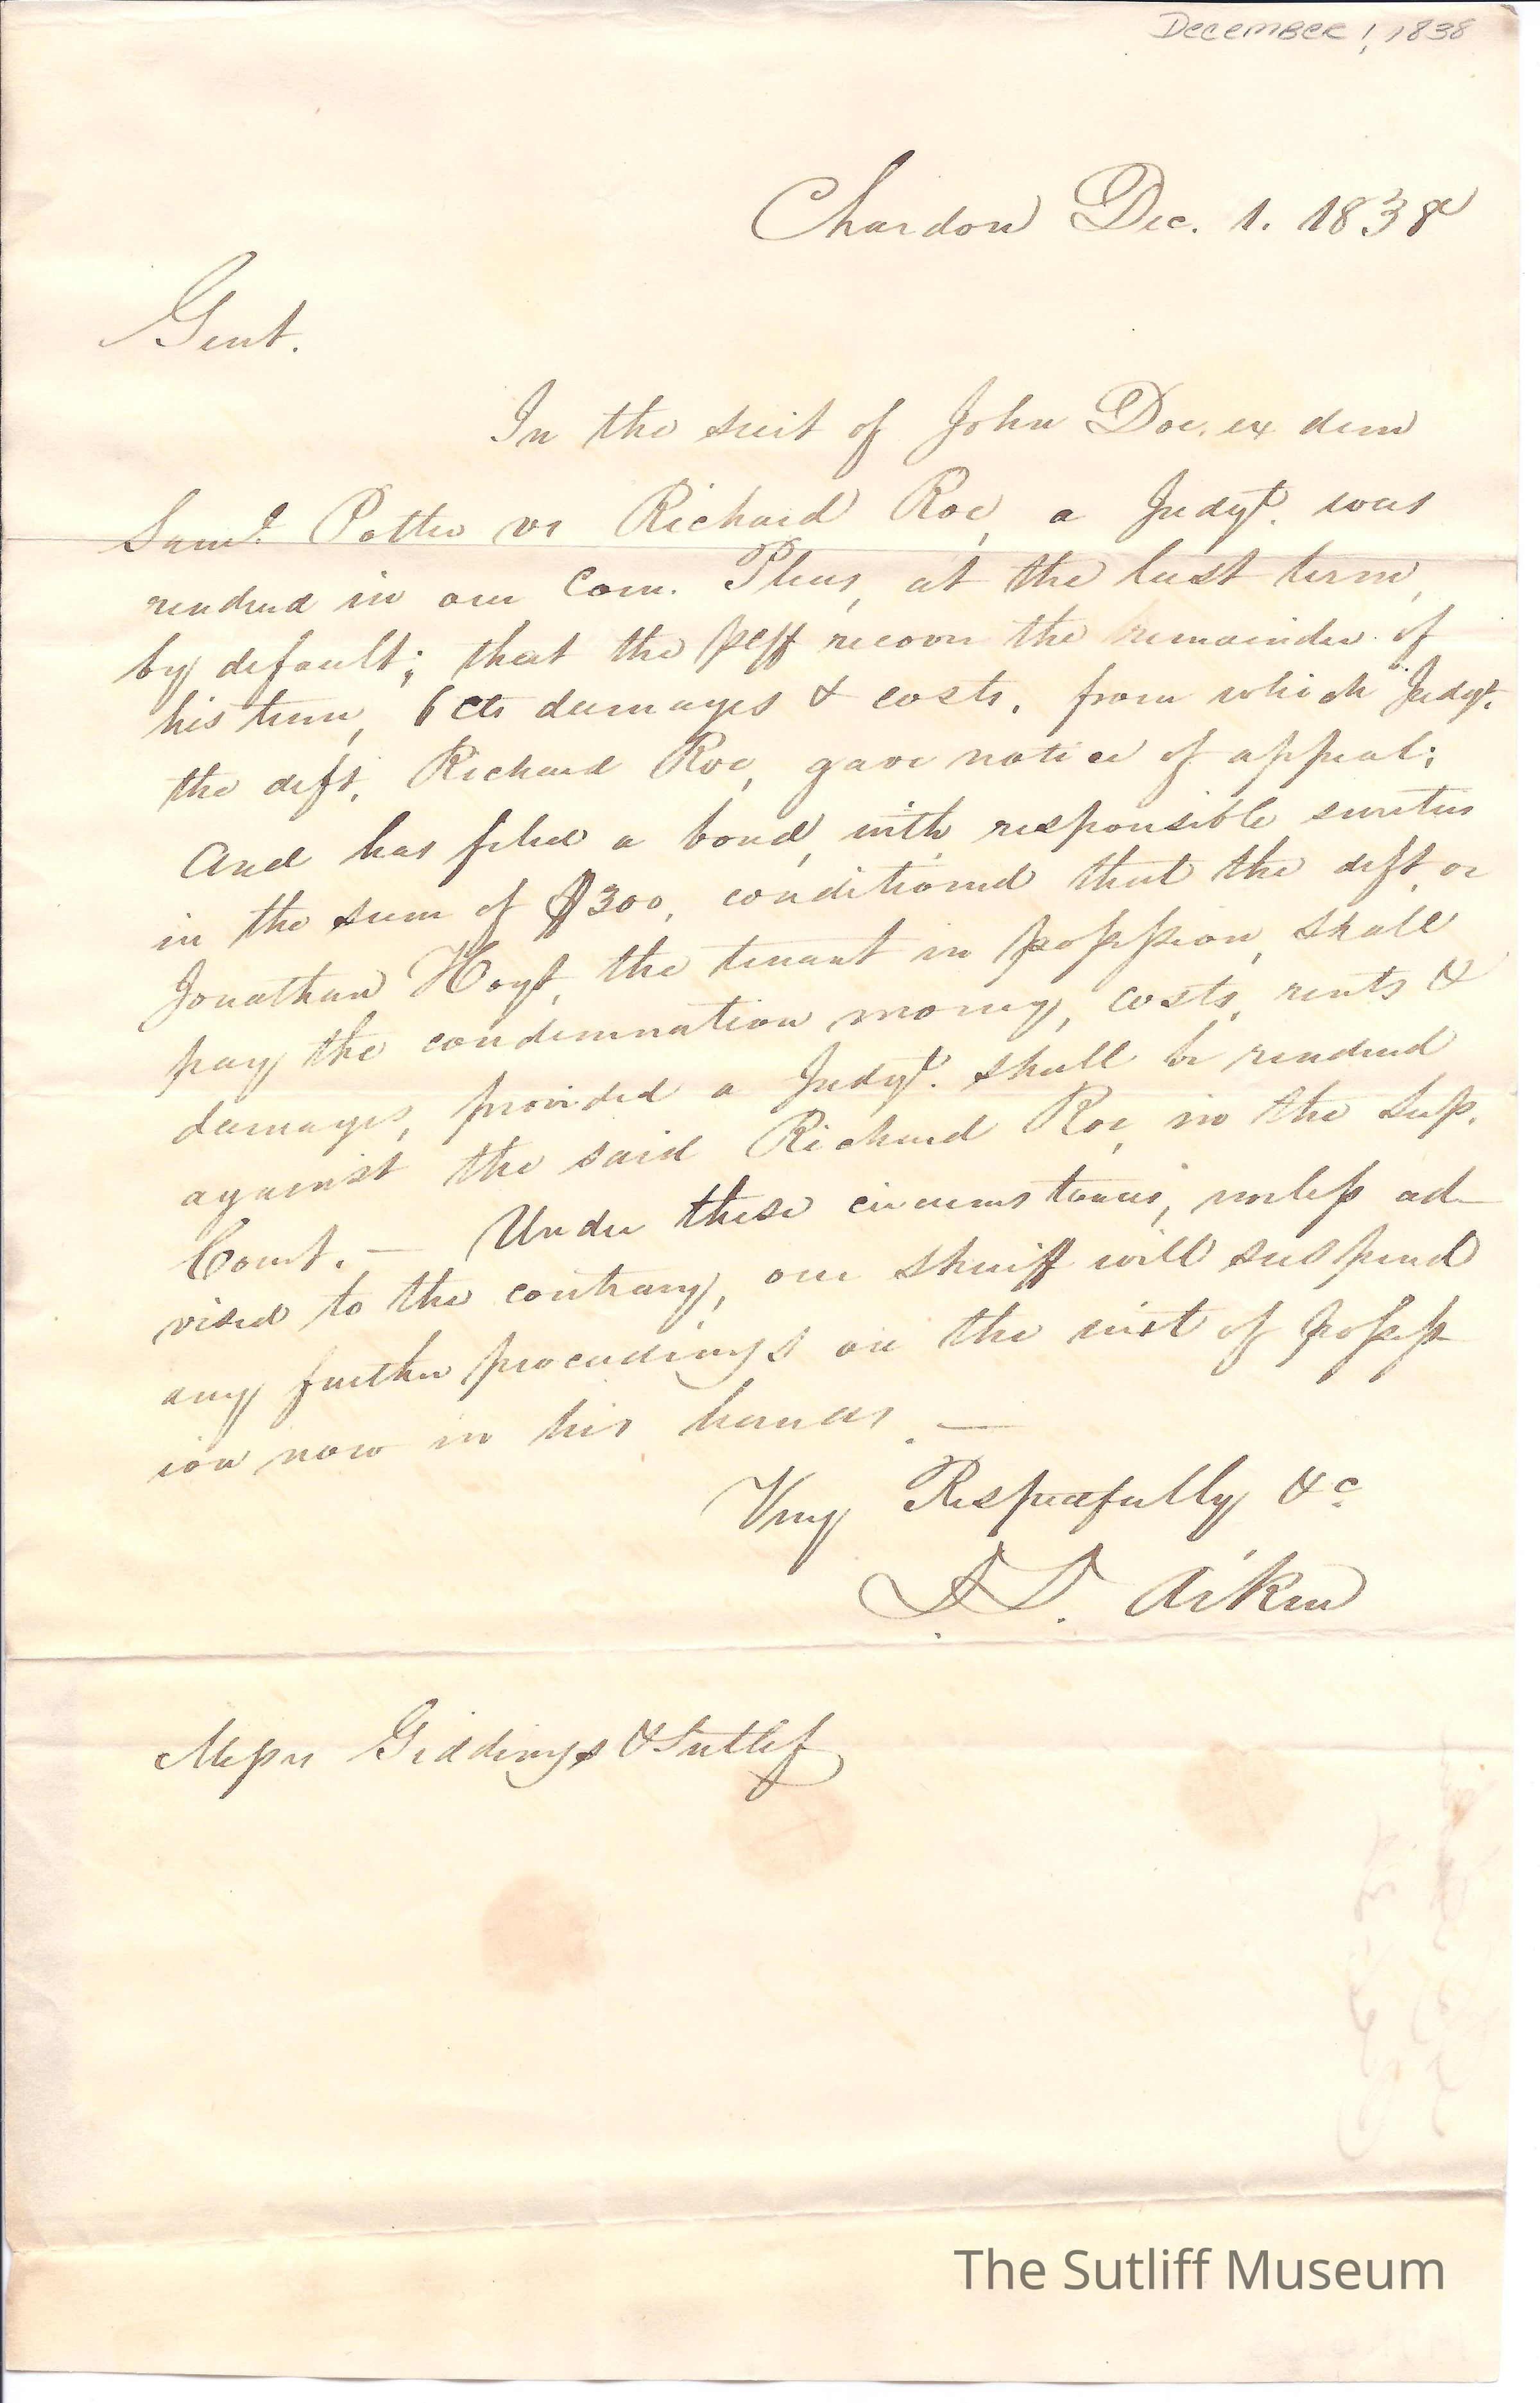 December 1, 1838
Chardon Dec. 1. 1838
Gent.
In the suit of John Doe. ex dem
Saml. Potter vs Richard Roe, a Judgt. was
rendered in our Com. Pleas, at the last term,
by default; that the plff recover the remainder of
his term, 6 cts damages & costs. from which Judgt.
the deft. Richard Roe, gave notice of appeal;
And has filed a bond, with responsible sureties
in the sum of $300, conditioned that the deft, or
Jonathan Hoyt, the tenant in possession, shall
pay the condemnation money, costs, rents &
damages, provided a Judgt. shall be rendered
against the said Richard Roe, in the Sup.
Court. — Under these circumstances, unless ad-
vised to the contrary, our sheriff will suspend
any further proceedings on the writ of possess
ion now in his hands. —
Very Respectfully &c
Aiken
Messrs Giddings & Sutlif
The Sutliff Museum